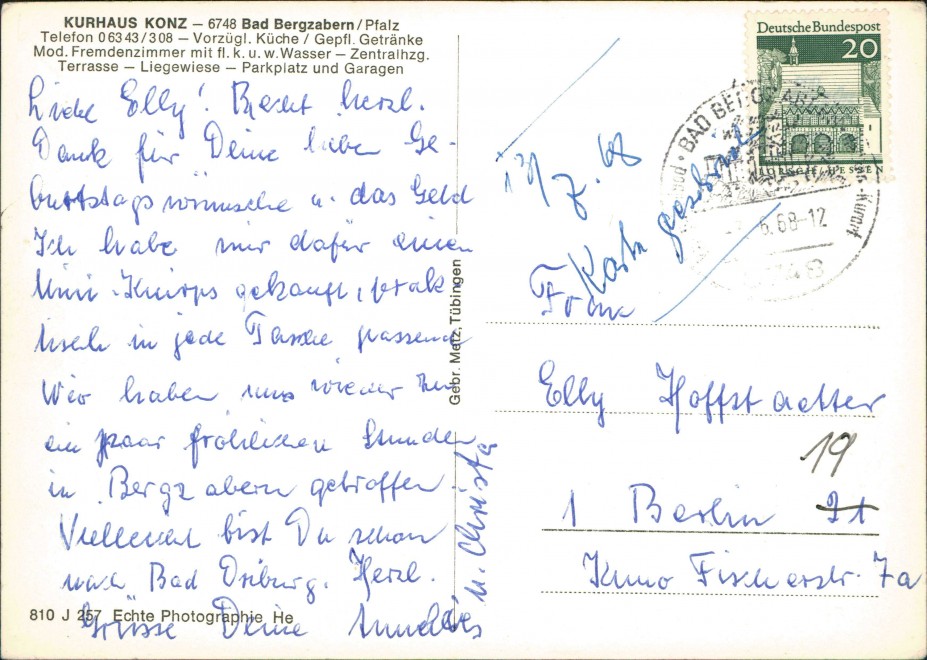 KURHAUS KONZ – 6748 Bad Bergzabern/Pfalz
Telefon 06343/308 – Vorzügl. Küche / Gepfl. Getränke
Mod. Fremdenzimmer mit fl. k. u. w. Wasser – Zentralhzg.
Terrasse – Liegewiese – Parkplatz und Garagen
Liebe Elly! Recht herzl.
Dank für Deine lieben Ge-
burtstagswünsche u. das Geld
Ich habe mir dafür einen
Mini-Knirps gekauft, prak
tisch in jede Tasche passend
Wir haben uns wieder zu
ein paar fröhlichen Stunden
in Bergzabern getroffen.
Vielleicht bist Du schon
nach Bad Driburg. Herzl.
Grüsse Deine
u. Christa
810 J 257 Echte Photographie He
Gebr. Metz, Tübingen
Deutsche Bundespost
20
LORSCH HESSEN
BAD BERGZABERN
Kurort
6.68-12
6748
7.68
Karte geschrieben
Frau
Elly Hoffstaetter
19
1 Berlin 21
Kuno Fischerstr. 7a